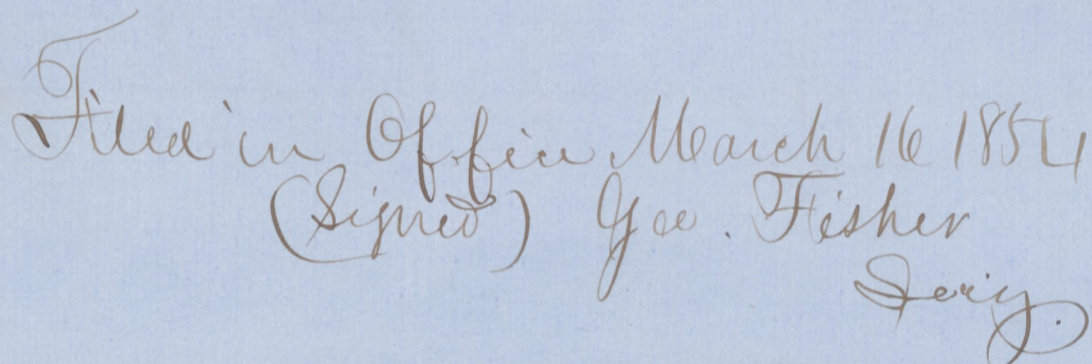 Filed in Office March 16 1854
(Signed) Geo. Fisher
Secy.